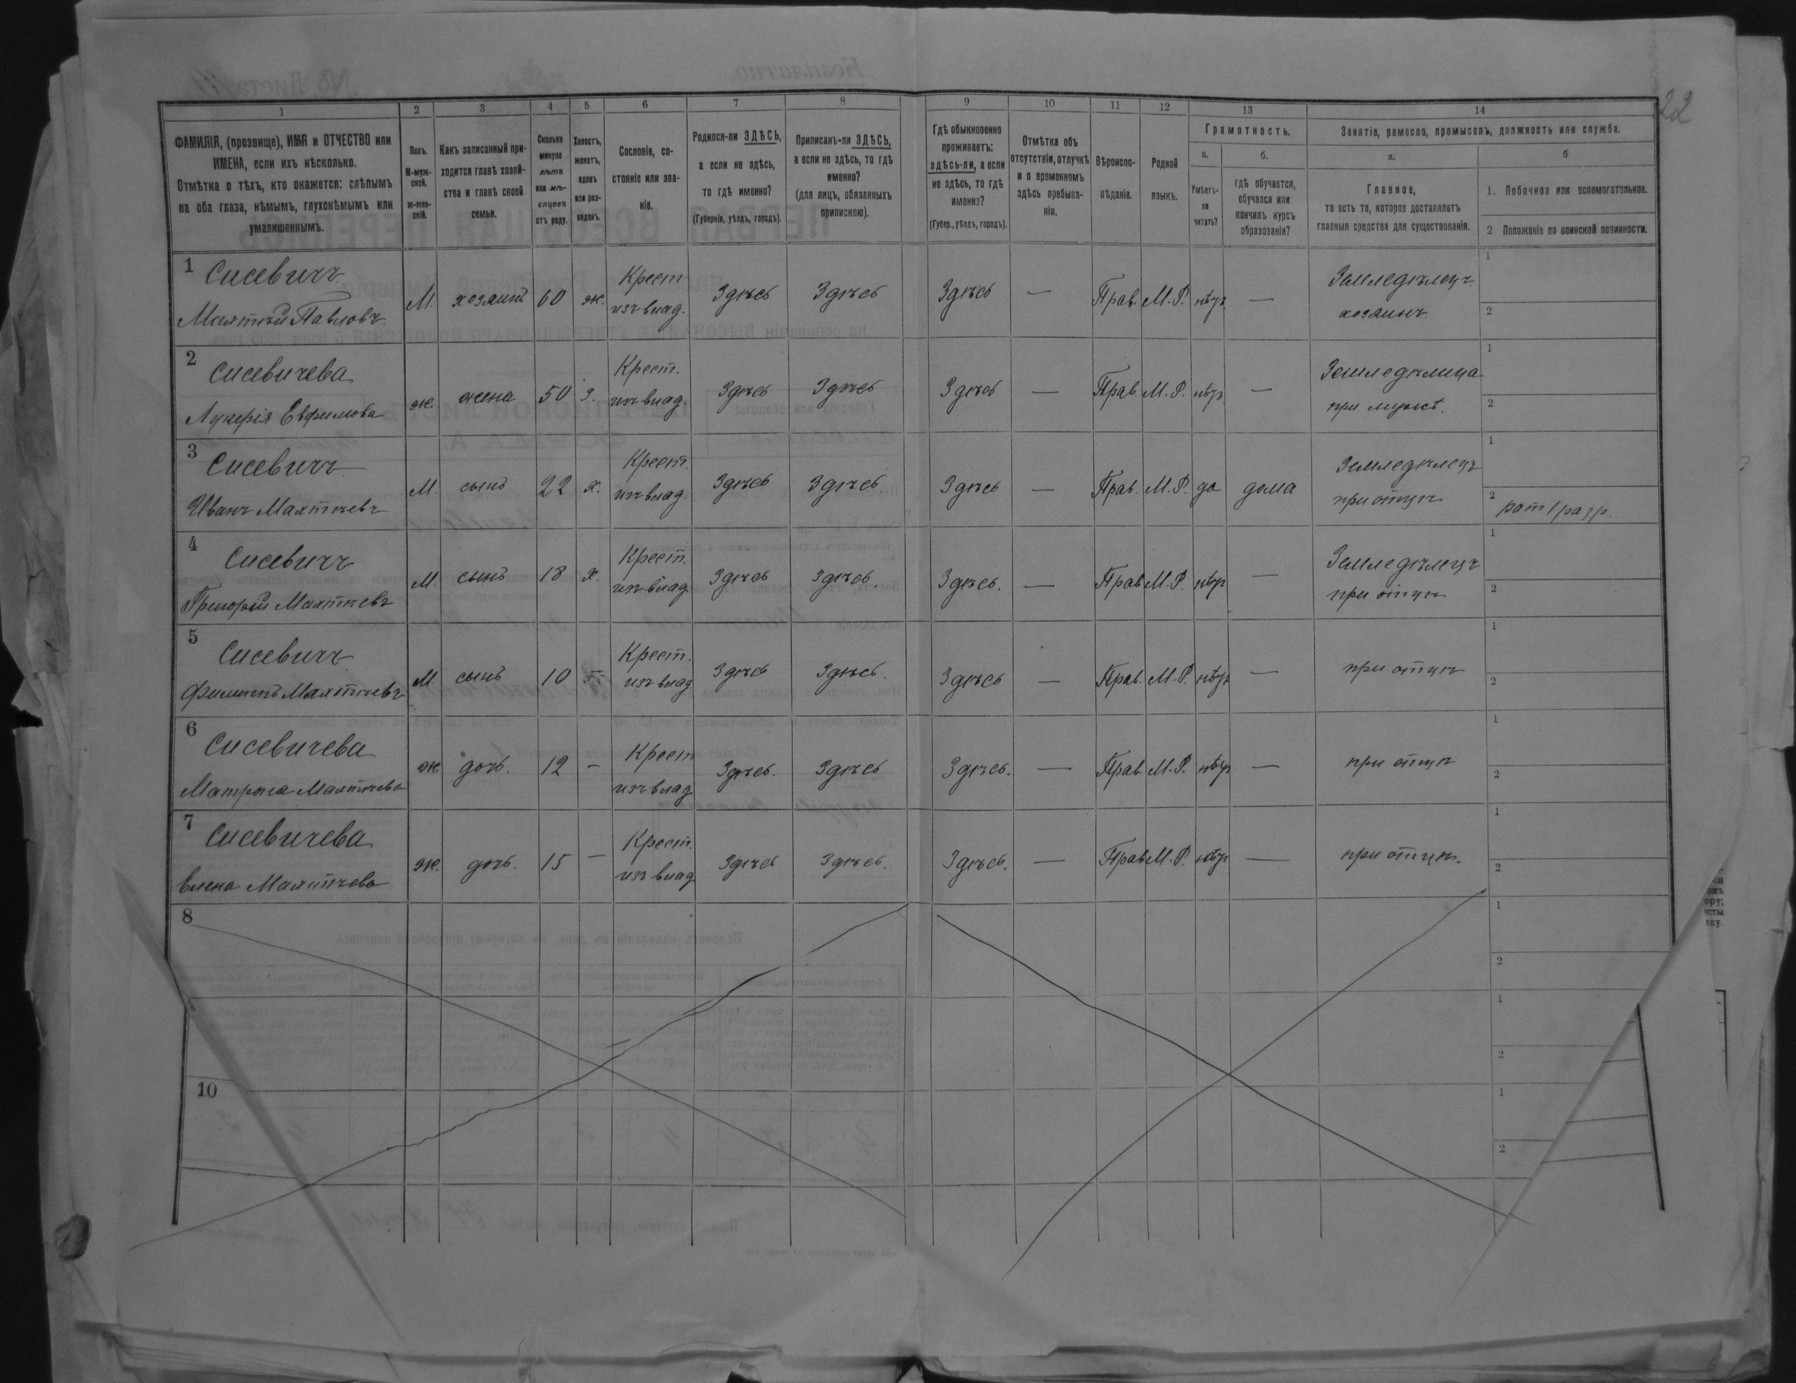 22
1 2 3 4 5 6 7 8 9 10 11 12 13 14
ФАМИЛІЯ, (прозвище), ИМЯ и ОТЧЕСТВО или ИМЕНА, если ихъ нѣсколько.
Отмѣтка о тѣхъ, кто окажется: слѣпымъ на оба глаза, нѣмымъ, глухонѣмымъ или умалишеннымъ.
Полъ.
М-мужской.
ж-женскій.
Какъ записанный приходится главѣ хозяйства и главѣ своей семьи.
Сколько минуло лѣтъ или мѣсяцевъ отъ роду.
Холостъ, женатъ, вдовъ или разведенъ.
Сословіе, состояніе или званіе.
Родился-ли ЗДѢСЬ, а если не здѣсь, то гдѣ именно?
(Губернія, уѣздъ, городъ).
Приписанъ-ли ЗДѢСЬ, а если не здѣсь, то гдѣ именно?
(для лицъ, обязанныхъ припискою).
Гдѣ обыкновенно проживаетъ: здѣсь-ли, а если не здѣсь, то гдѣ именно?
(Губер., уѣздъ, городъ).
Отмѣтка объ отсутствіи, отлучкѣ и о временномъ здѣсь пребываніи.
Вѣроисповѣданіе.
Родной языкъ.
Грамотность.
а.
Умѣетъ-ли читать?
б.
гдѣ обучается, обучался или кончилъ курсъ образованія?
Занятіе, ремесло, промыселъ, должность или служба.
а.
Главное,
то есть то, которое доставляетъ главныя средства для существованія.
б
1. Побочное или вспомогательное.
2. Положеніе по воинской повинности.
1 Сисевичъ Матѣй Павловъ М. хозяинъ 60 ж. Крест изъ влад. Здѣсь Здѣсь Здѣсь — Прав. М.Р. нѣтъ — Земледѣлецъ хозяинъ 1 2
2 Сисевичева Лукерія Евфимова ж. жена 50 з. Крест. изъ влад. Здѣсь Здѣсь Здѣсь — Прав. М.Р. нѣтъ — Земледѣлица при мужѣ. 1 2
3 Сисевичъ Иванъ Матѣевъ М. сынъ 22 х. Крест. изъ влад. Здѣсь Здѣсь. Здѣсь — Прав. М.Р. да дома Земледѣлецъ при отцѣ 1 2 рат 1 разр.
4 Сисевичъ Григорій Матѣевъ М. сынъ 18 х. Крест. изъ влад. Здѣсь Здѣсь. Здѣсь. — Прав. М.Р. нѣтъ — Земледѣлецъ при отцѣ 1 2
5 Сисевичъ Филиппъ Матѣевъ М. сынъ 10 Крест. изъ влад Здѣсь Здѣсь. Здѣсь — Прав. М.Р. нѣтъ — при отцѣ 1 2
6 Сисевичева Матрона Матѣева ж. дочь. 12 — Крест изъ влад Здѣсь. Здѣсь Здѣсь. — Прав. М.Р. нѣтъ — при отцѣ 1 2
7 Сисевичева Елена Матѣева ж. дочь. 15 — Крест. изъ влад Здѣсь Здѣсь. Здѣсь. — Прав М.Р. нѣтъ — при отцѣ. 1 2
8 1 2
1 2
10 1 2